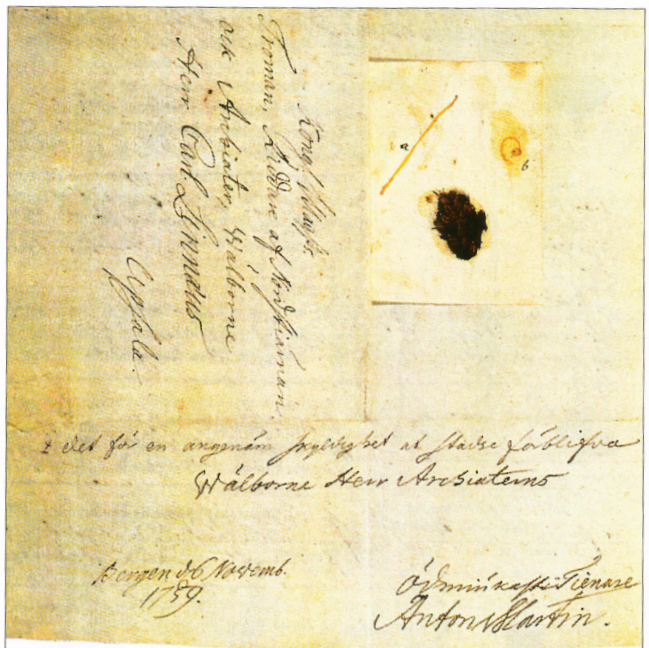 Kongl. Maj:ts
Troman, Riddare af Nordstiärnan,
ock Archiater, Wälborne
Herr Carl Linnæus
Upsala.
a
b
det för en angenäm skyldighet at stadse förblifva
Wälborne Herr Archiaterns
Bergen d. 6 Novemb.
1759.
Ödmiukaste Tienare
Anton Martin.